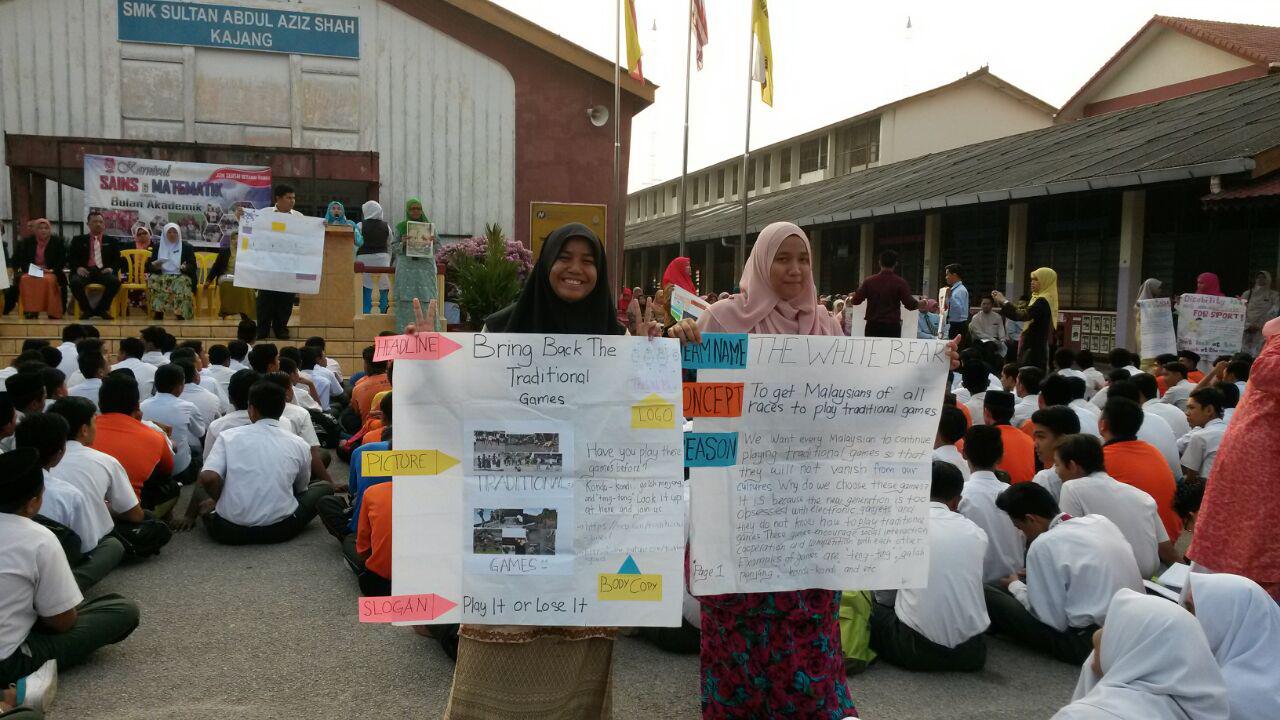 SMK SULTAN ABDUL AZIZ SHAH
KAJANG
Karnival
SAINS & MATEMATIK
Bulan Akademik
HEADLINE
Bring Back The
Traditional
Games
LOGO
PICTURE
TRADITIONAL
GAMES
Have you play these
games before?
Konda-kondi, galah panjang
and "teng-teng" Look it up
at here and join
us
BODY COPY
SLOGAN
Play It or Lose It
TEAM NAME
THE WHITE BEAR
CONCEPT
To get Malaysians of all
races to play traditional games
REASON
We want every Malaysian to continue
playing traditional games so that
they will not vanish from our
cultures. Why do we choose these games?
It is because the new generation is too
obsessed with electronic gadgets and
they do not know how to play traditional
games. These games encourage social interaction,
cooperation and competition with each other.
Examples of games are "teng-teng", galah
panjang, konda-kondi and etc
Page 1
Disability
FOR SPORT!